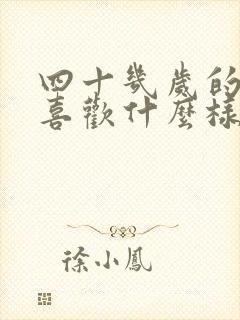 四十幾歲的
喜歡什麼樣
徐小鳳